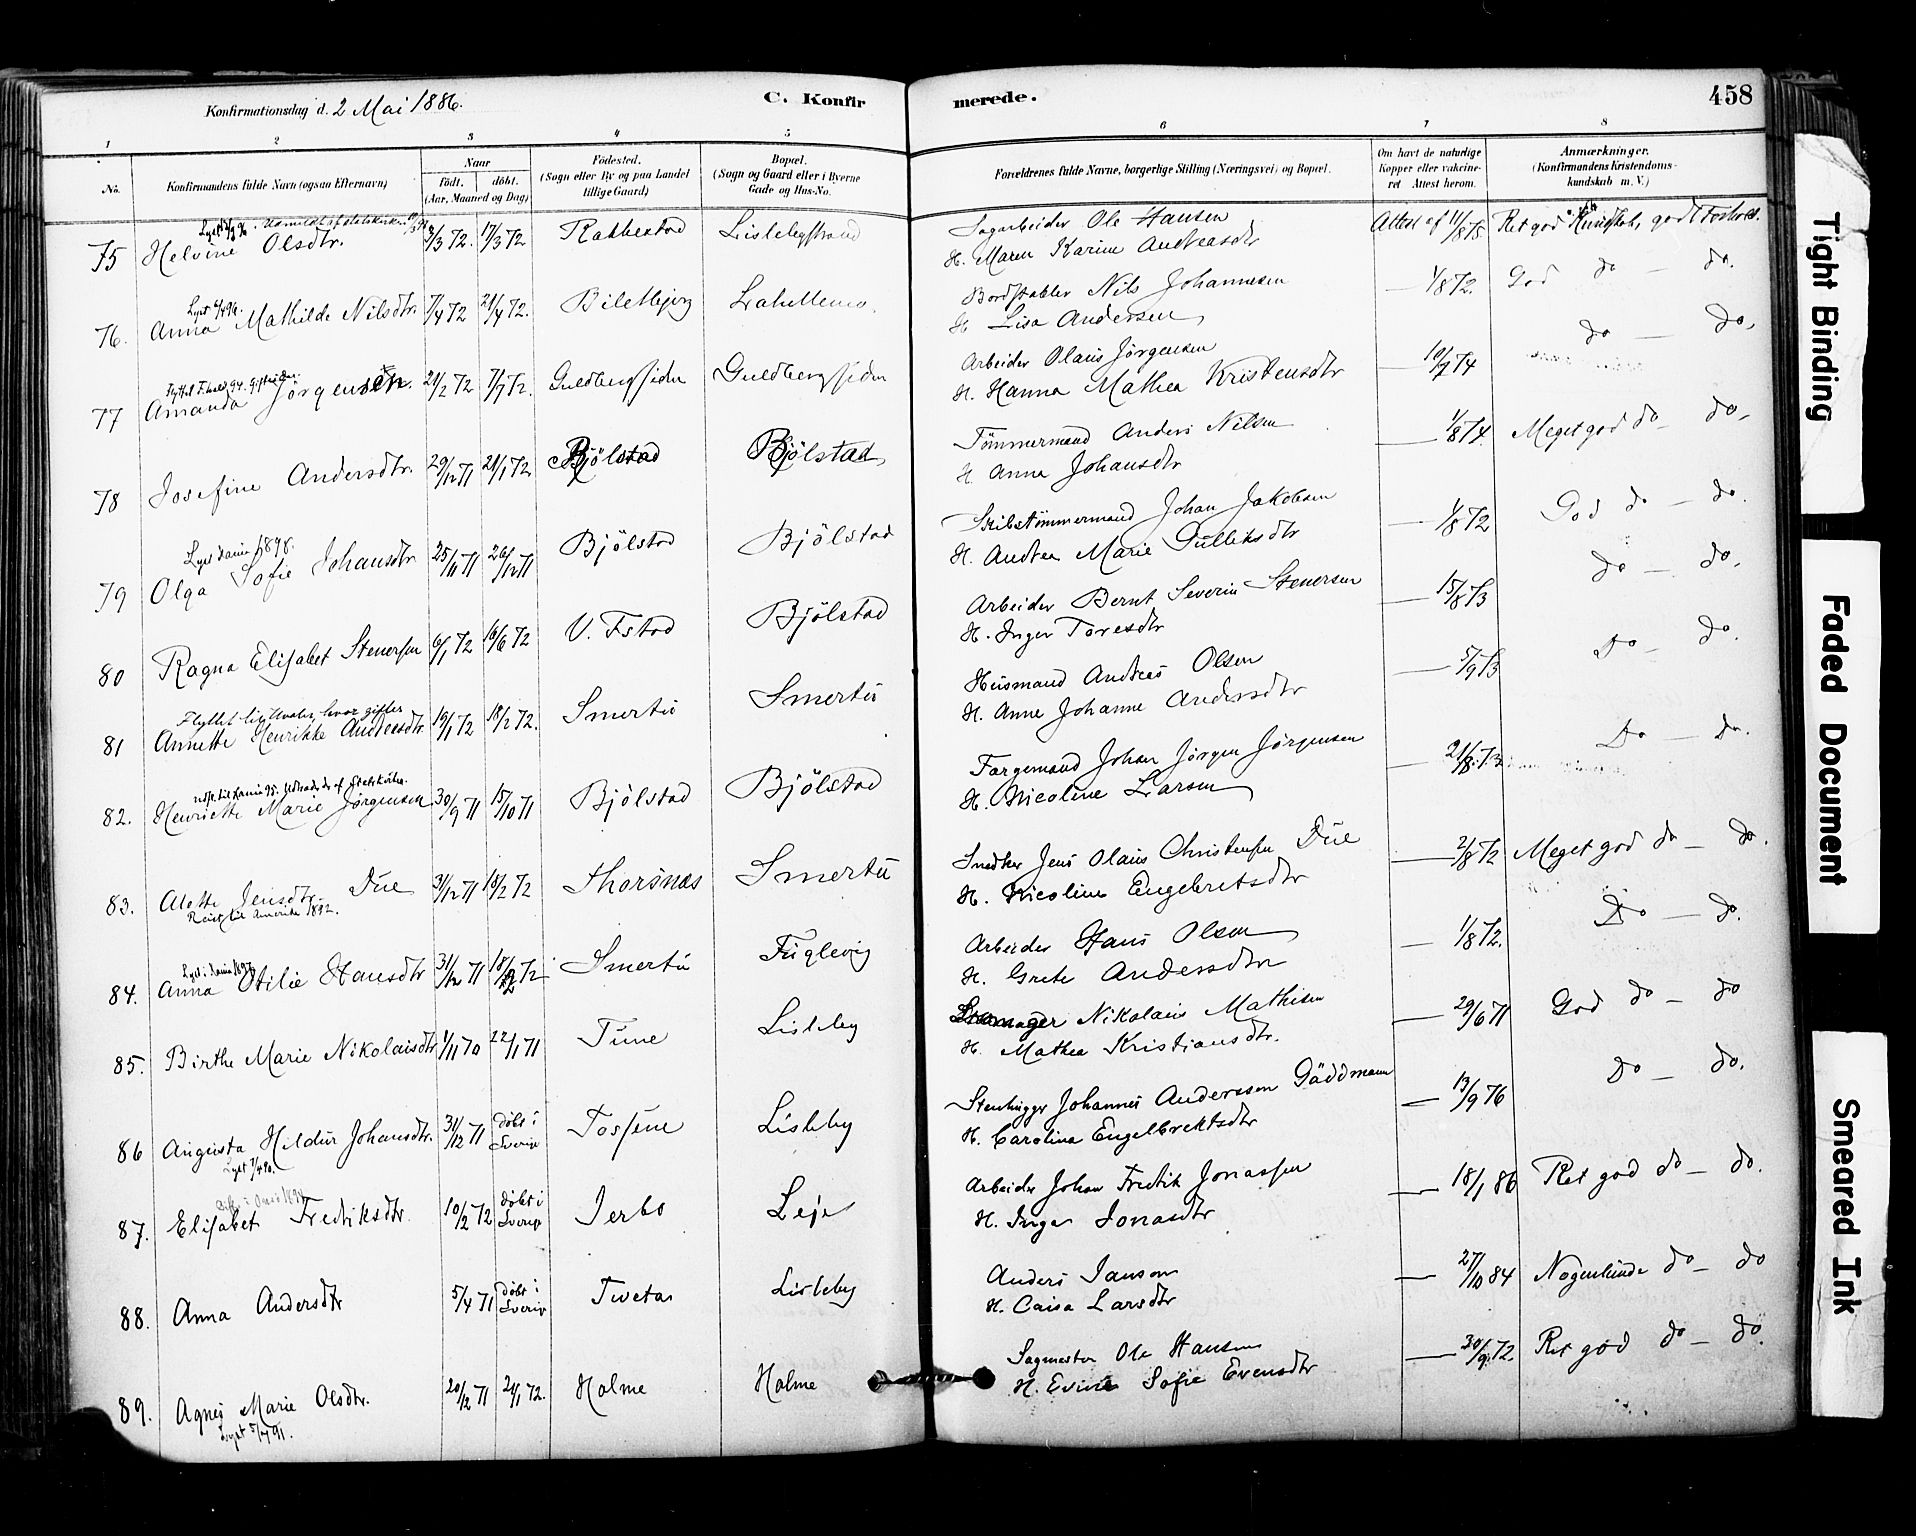 Konfirmationsdag d. 2 Mai 1886.
C. Konfirmerede.
458
1 2 3 4 5 6 7 8
No.
Konfirmandens fulde Navn (ogsaa Efternavn)
Naar
födt. döbt.
(Aar, Maaned og Dag)
Födested.
(Sogn eller By og paa Landet
tillige Gaard)
Bopæl.
(Sogn og Gaard eller i Byerne
Gade og Hus-No.
Forældrenes fulde Navne, borgerlige Stilling (Næringsvei) og Bopæl.
Om havt de naturlige
Kopper eller vaksine-
ret Attest herom.
Anmærkninger.
(Konfirmandens Kristendoms-
kundskab m. V.)
75 Helvine Olsdtr. 8/3 72. 17/3 72 Lislebystrand Sagarbeider Ole Hansen Attest af 11/8 75 Ret god Kundskab, godt Forhold.
H. Maren Karine Andreasdtr
76. Anna Mathilde Nilsdtr. 7/4 72 21/4 72. Bordstabler Nils Johannesen 1/8 72. God do — do.
H. Lisa Andersen
77 Amanda Jørgensen. 21/2 72 7/7 72. Guldbergsiden Guldbergsiden Arbeider Olaus Jørgensen 10/7 74 do — do,
H. Hanna Mathea Kristensdtr
78 Josefine Andersdtr. 29/12 71 21/1 72 Bjölstad Bjölstad Tömmermand Anders Nilsen 1/8 74. Meget god do — do,
H Anna Johansdtr
Lyst 1898.
79 Olga Sofie Johansdtr 25/11 71 26/12 71 Bjölstad Bjölstad Skibstömmermand Johan Jakobsen 1/8 72 God do — do.
H. Andrea Marie
80 Ragna Elisabet Stenersen 6/1 72 16/6 72 Bjölstad Arbeider Bernt Severin Stenersen 15/8 73 do — do.
H. Inger Toresdtr
Flyttet til Hvaler, hvor gifter
81 Annette Henrikke Andreasdtr. 19/1 72 18/2 72. Smertu Smertu Husmand Andreas Olsen 5/9 73 Do — do.
H. Anne Johanne Andersdtr
82. Henriette Marie Jørgensen. 30/9 71 15/10 71 Bjölstad Bjölstad Færgemand Johan Jörgen Jörgensen 21/8. 73 Do — do.
H. Nicoline Larsen
83. Alette Jensdtr. Due 31/12 71 18/2 72 Thorsnæs Smertu Snedker Jens Olaus Christensen Due 2/8 72 Meget god do — do.
Reist til Amerika 1892. H. Nicoline Engebretsdtr
84. Anna Otilie Hansdtr 31/12 71 18/2 72 Smertu Fuglevig Arbeider Hans Olsen 1/8 72. Do — do.
H. Grete Andersdtr
85. Birthe Marie Nikolaisdtr 1/11 70 22/1 71 Tune Lisleby Nikolaus Mathisen 29/6 71 God do — do
H. Mathea Kristiansdtr.
86 Augusta Hildur Johansdtr. 31/12 71 döbt i Sverige Tossene Lisleby Stenhugger Johannes Andersson Gäddmann 13/9 76 Do — do.
H. Carolina Engelbrektsdtr
87. Elisabet Fredriksdtr 10/2 72 döbt i Sverige Jerbo Leje Arbeider Johan Fredrik Jonassen 18/1 86 Ret god do — do.
H. Inga Jonasdtr
88. Anna Andersdtr 5/4 71 döbt i Sverige Tvetan Lisleby Anders Janson 27/10 84 Nogenlunde do — do
H. Caisa Larsdtr
89. Agnes Marie Olsdtr. 20/12 71 21/1 72. Holme Holme Sagmester Ole Hansen 30/9. 72. Ret god do — do.
Lyst 5/7 91. H. Sofie Evensdtr
Tight Binding
Faded Document
Smeared Ink